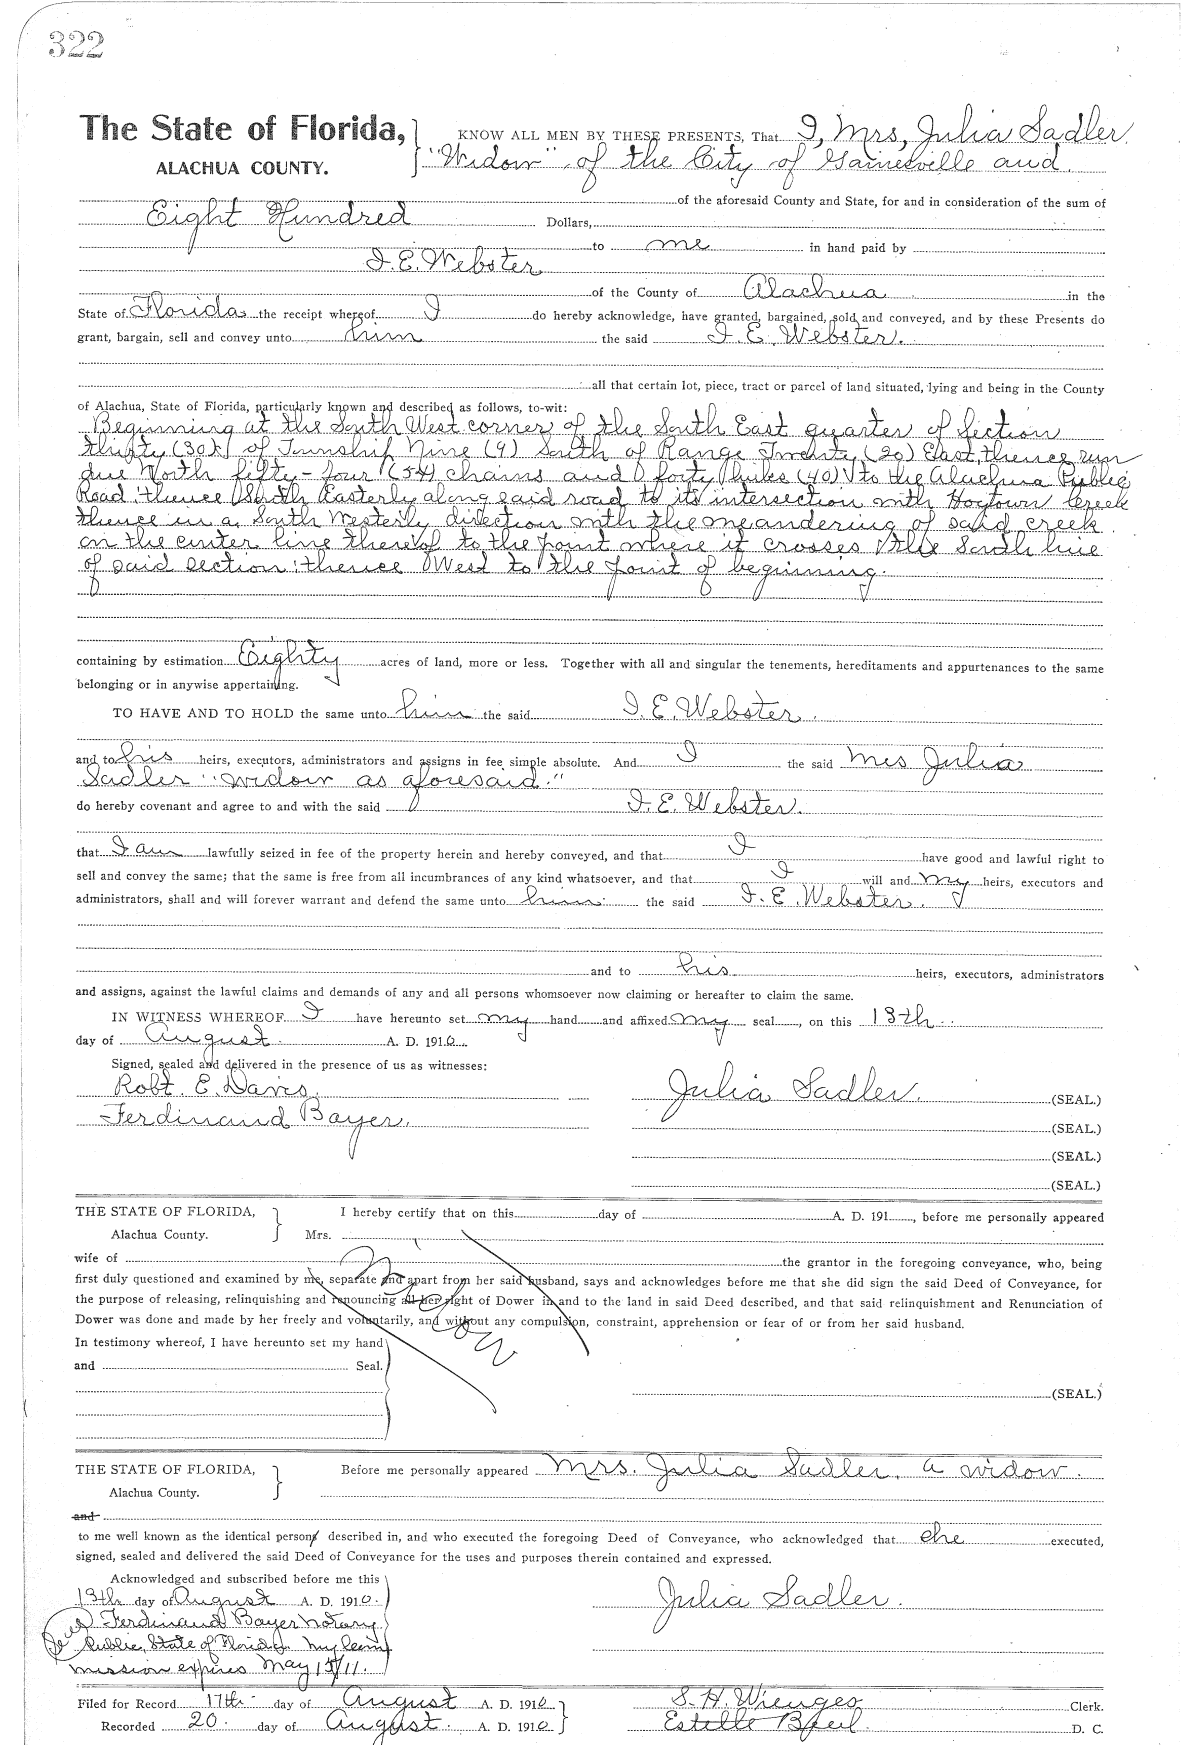 322
The State of Florida, KNOW ALL MEN BY THESE PRESENTS, That I, Mrs, Julia Sadler
ALACHUA COUNTY. "Widow" of the City of Gainesville and
of the aforesaid County and State, for and in consideration of the sum of
Eight Hundred Dollars,
to me in hand paid by
I. E. Webster
of the County of Alachua in the
State of Florida the receipt whereof I do hereby acknowledge, have granted, bargained, sold and conveyed, and by these Presents do
grant, bargain, sell and convey unto him the said I. E. Webster.
all that certain lot, piece, tract or parcel of land situated, lying and being in the County
of Alachua, State of Florida, particularly known and described as follows, to-wit:
Beginning at the South West corner of the South East quarter of Section
thirty (30) of Township Nine (9) South of Range Twenty (20) East, thence run
due North fifty-four (54) chains and forty links (40) to the Alachua Public
Road: thence South Easterly along said road to its intersection with Hogtown Creek
thence in a South Westerly direction with the meandering of said creek
on the center line thereof to the point where it crosses the South line
of said section: thence West to the point of beginning.
containing by estimation Eighty acres of land, more or less. Together with all and singular the tenements, hereditaments and appurtenances to the same
belonging or in anywise appertaining.
TO HAVE AND TO HOLD the same unto him the said I. E. Webster.
and to his heirs, executors, administrators and assigns in fee simple absolute. And I the said Mrs Julia
Sadler "widow as aforesaid."
do hereby covenant and agree to and with the said I. E. Webster.
that I am lawfully seized in fee of the property herein and hereby conveyed, and that I have good and lawful right to
sell and convey the same; that the same is free from all incumbrances of any kind whatsoever, and that I will and my heirs, executors and
administrators, shall and will forever warrant and defend the same unto him the said I. E. Webster.
and to his heirs, executors, administrators
and assigns, against the lawful claims and demands of any and all persons whomsoever now claiming or hereafter to claim the same.
IN WITNESS WHEREOF I have hereunto set my hand and affixed my seal, on this 13th
day of August A. D. 1910.
Signed, sealed and delivered in the presence of us as witnesses:
Robt. E. Davis. Julia Sadler. (SEAL.)
Ferdinand Bayer. (SEAL.)
(SEAL.)
(SEAL.)
THE STATE OF FLORIDA, I hereby certify that on this day of A. D. 191, before me personally appeared
Alachua County. Mrs.
wife of the grantor in the foregoing conveyance, who, being
first duly questioned and examined by me, separate and apart from her said husband, says and acknowledges before me that she did sign the said Deed of Conveyance, for
the purpose of releasing, relinquishing and renouncing all her right of Dower in and to the land in said Deed described, and that said relinquishment and Renunciation of
Dower was done and made by her freely and voluntarily, and without any compulsion, constraint, apprehension or fear of or from her said husband.
Widow
In testimony whereof, I have hereunto set my hand
and Seal.
(SEAL.)
THE STATE OF FLORIDA, Before me personally appeared Mrs. Julia Sadler. a widow.
Alachua County.
and
to me well known as the identical person described in, and who executed the foregoing Deed of Conveyance, who acknowledged that she executed,
signed, sealed and delivered the said Deed of Conveyance for the uses and purposes therein contained and expressed.
Acknowledged and subscribed before me this
13th day of August A. D. 1910. Julia Sadler.
Seal Ferdinand Bayer Notary
Public, State of Florida. My Com
mission expires May 15/11.
Filed for Record 17th day of August A. D. 1910 S. H. Wienges Clerk.
Recorded 20. day of August. A. D. 1910 Estelle D. C.